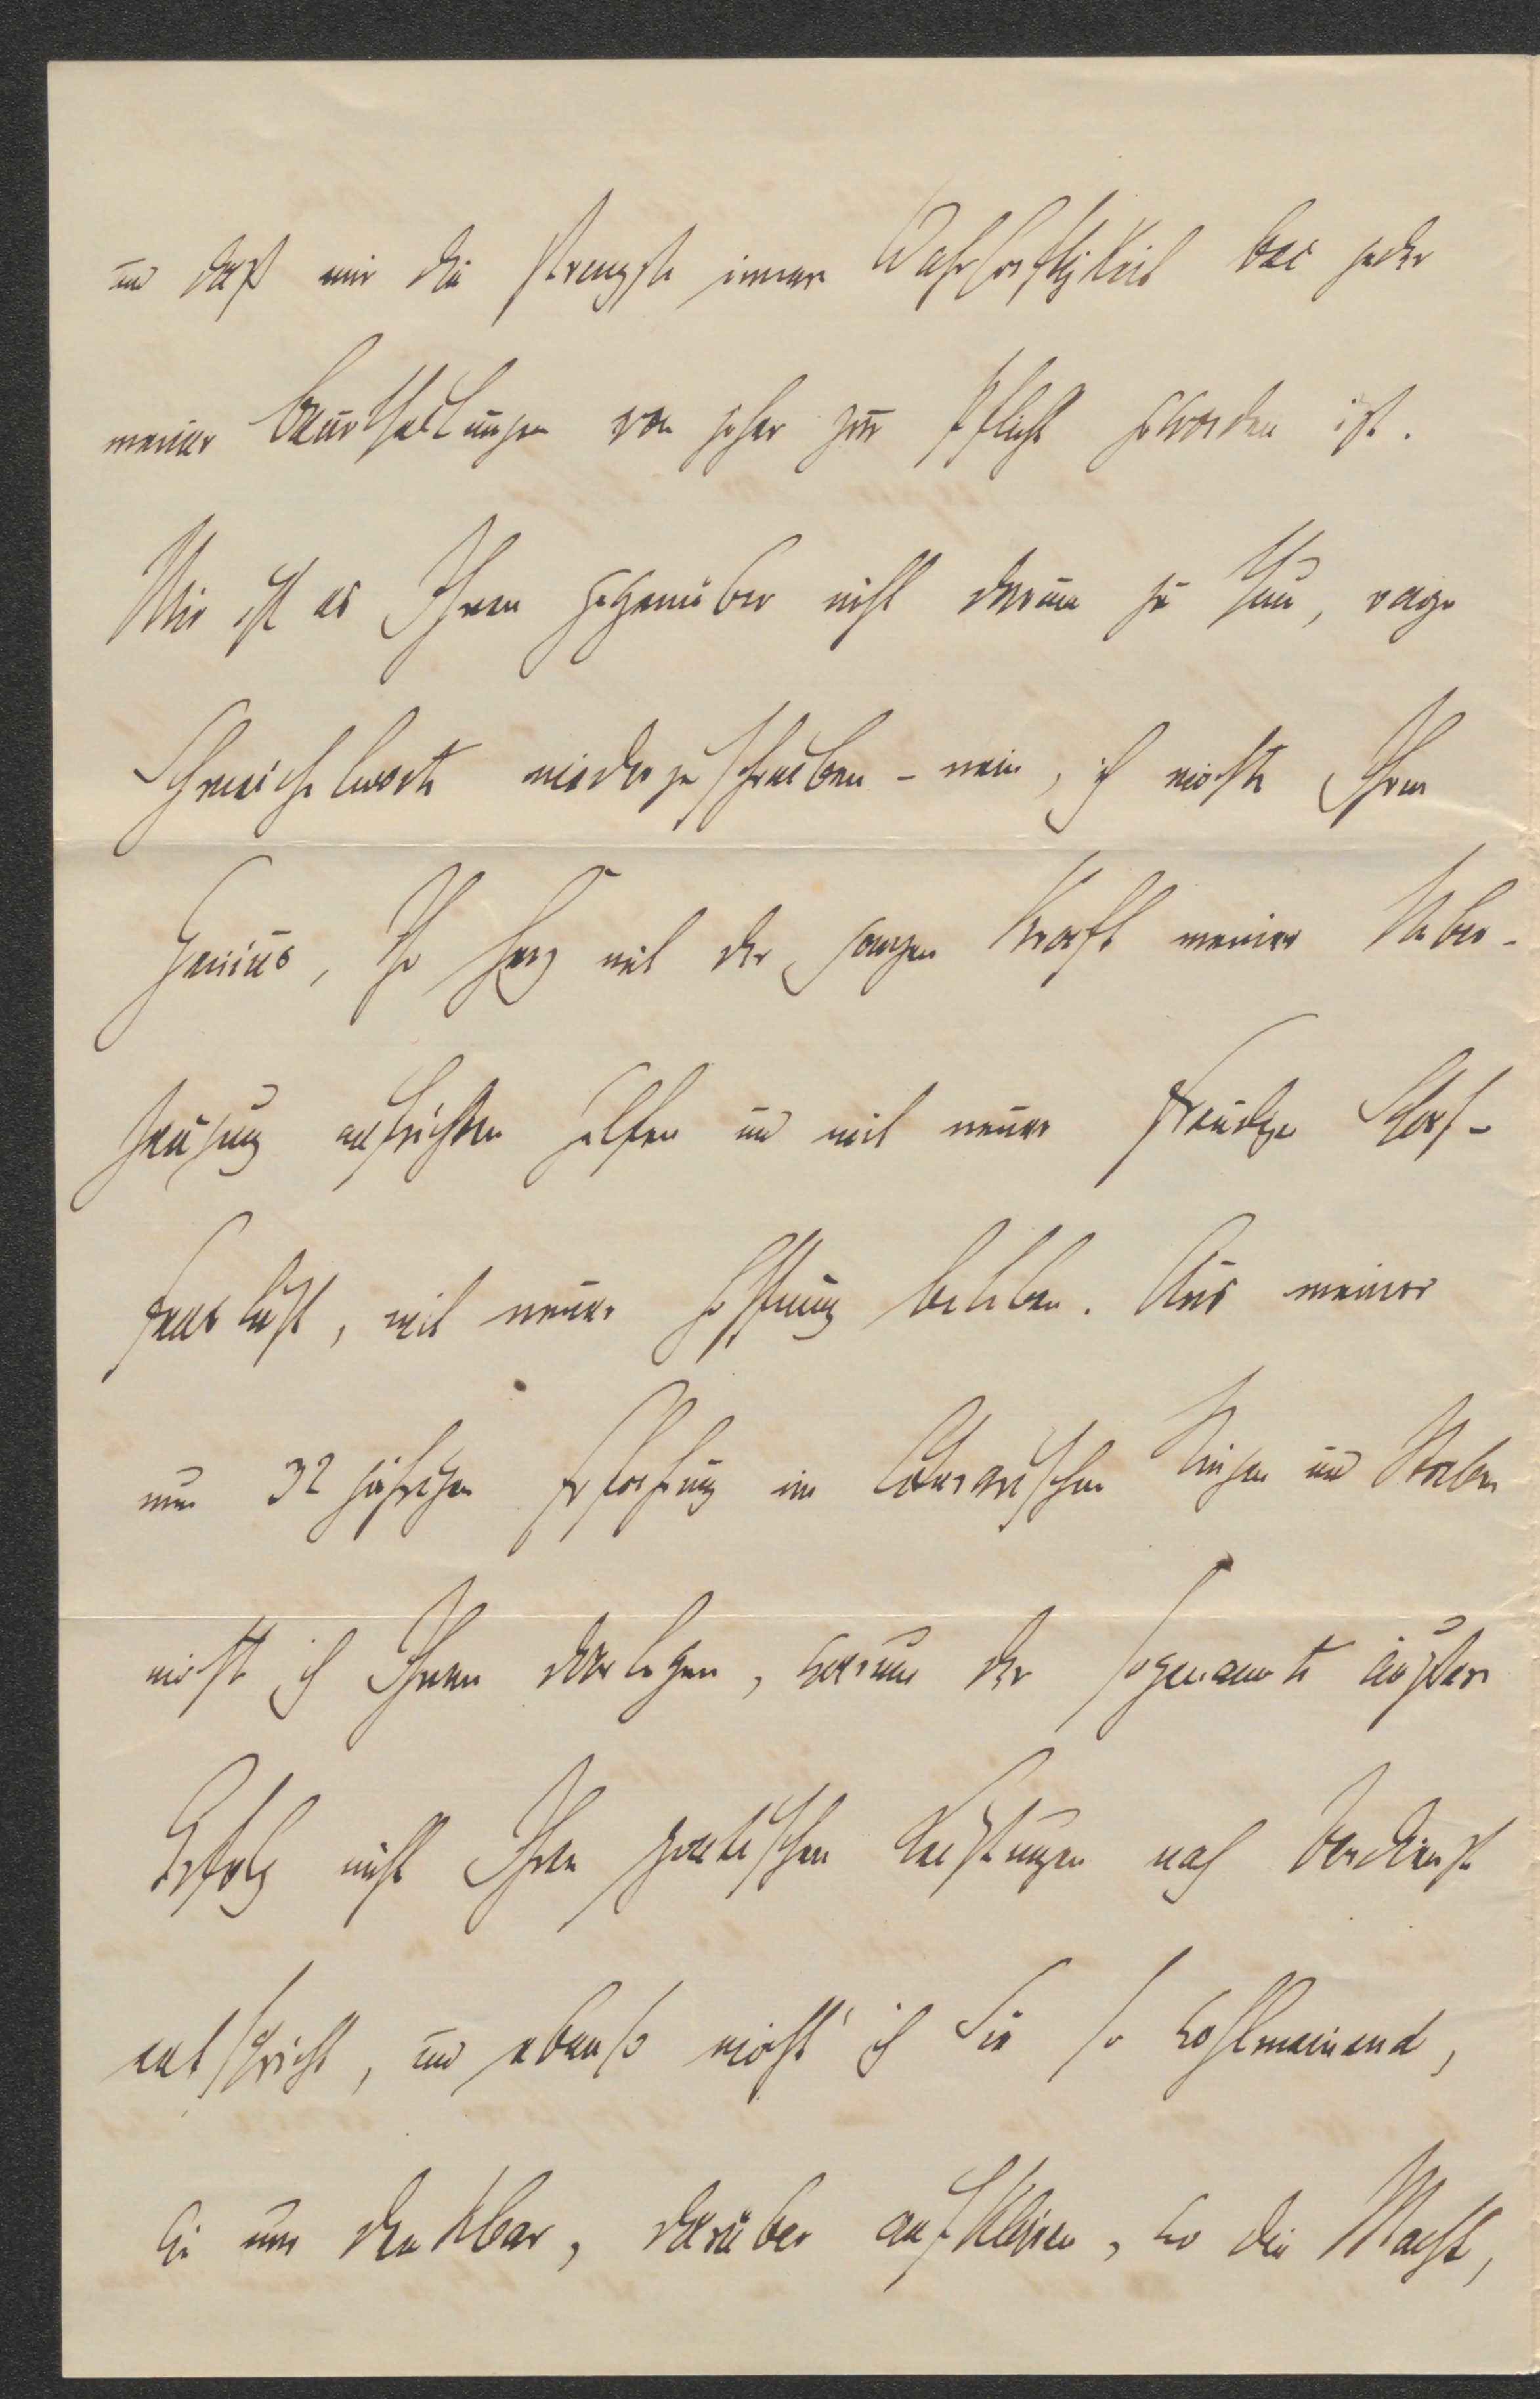 und daß mir die strengste innere Wahrhaftigkeit bei jeder
meiner Beurtheilungen von jeher zur Pflicht geworden ist.
Mir ist es Ihnen gegenüber nicht darum zu thun, vage
Schmeichelworte niederzuschreiben – nein, ich möchte Ihren
Genius, Ihr Herz mit der ganzen Kraft meiner Ueber-
zeugung aufrichten helfen und mit neuer freudiger Schaf-
fenslust, mit neuer Hoffnung beleben. Aus meiner
nun 32 jährigen Erfahrung im literarischen Ringen und Streben
möchte ich Ihnen darlegen, warum der sogenannte äußere
Erfolg nicht Ihren poetischen Leistungen nach Verdienst
entspricht, und ebenso möcht' ich Sie so wohlmeinend,
wie nur denkbar, darüber aufklären, wo die Macht,